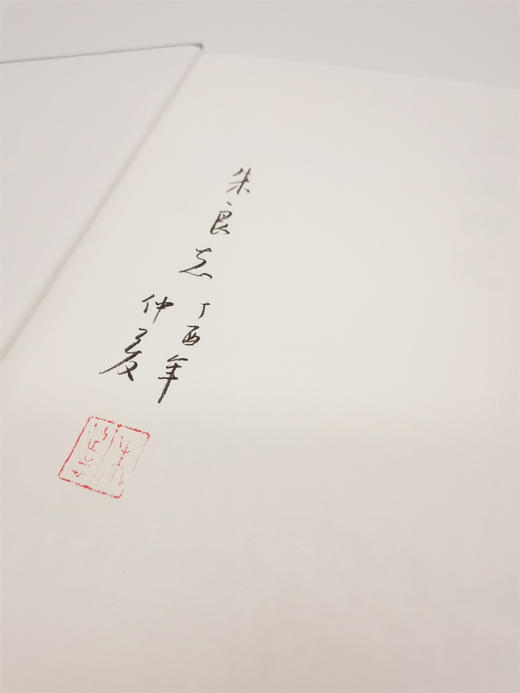 朱良志
丁酉年
仲夏